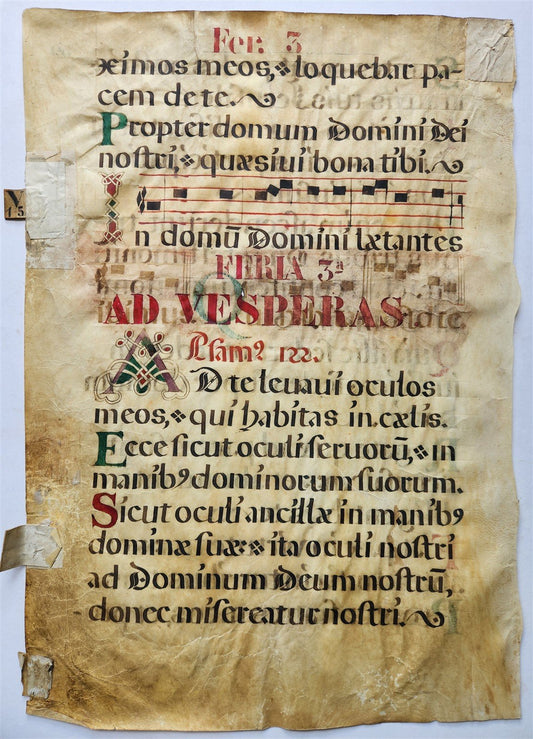 Fer. 3
ximos meos, loquebar pa-
cem de te.
Propter domum Domini Dei
nostri, quæsiui bona tibi.
In domū Domini lætantes
FERIA 3ª
AD VESPERAS
Psalm⁹ 122.
AD te leuaui oculos
meos, qui habitas in cælis.
Ecce sicut oculi seruorū, in
manib⁹ dominorum suorum.
Sicut oculi ancillæ in manib⁹
dominæ suæ: ita oculi nostri
ad Dominum Deum nostrū,
donec misereatur nostri.